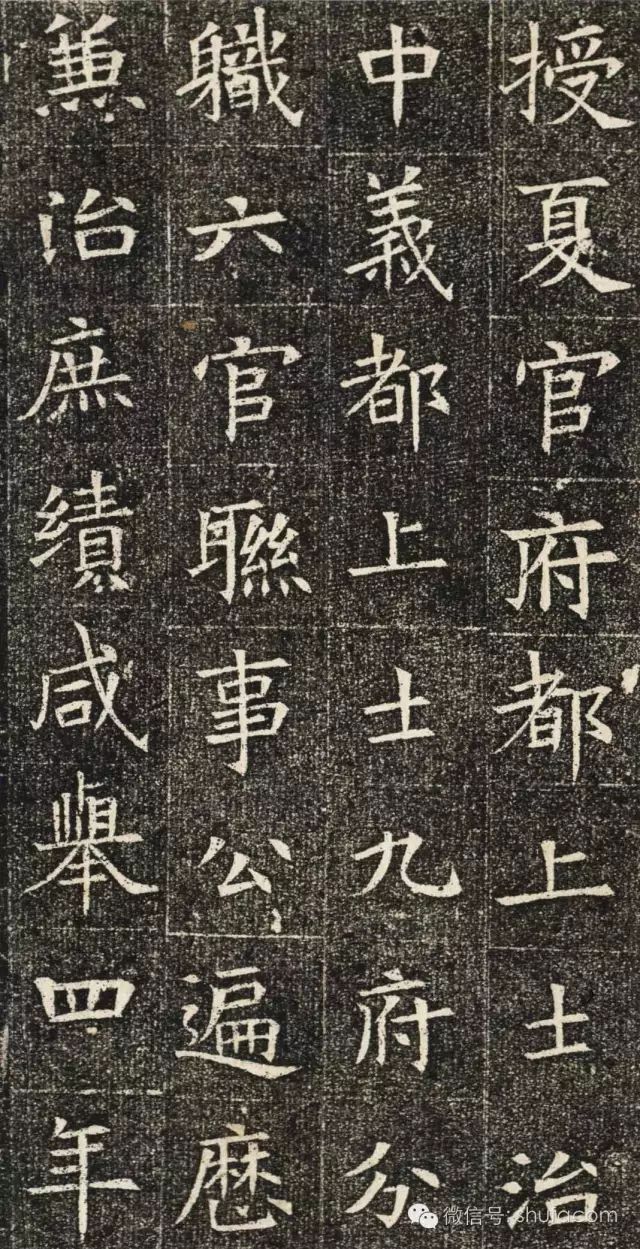 授夏官府都上士治
中義都上士九府分
軄六官聮事公遍歴
蒹治庶績咸舉四年
微信号: shufacom